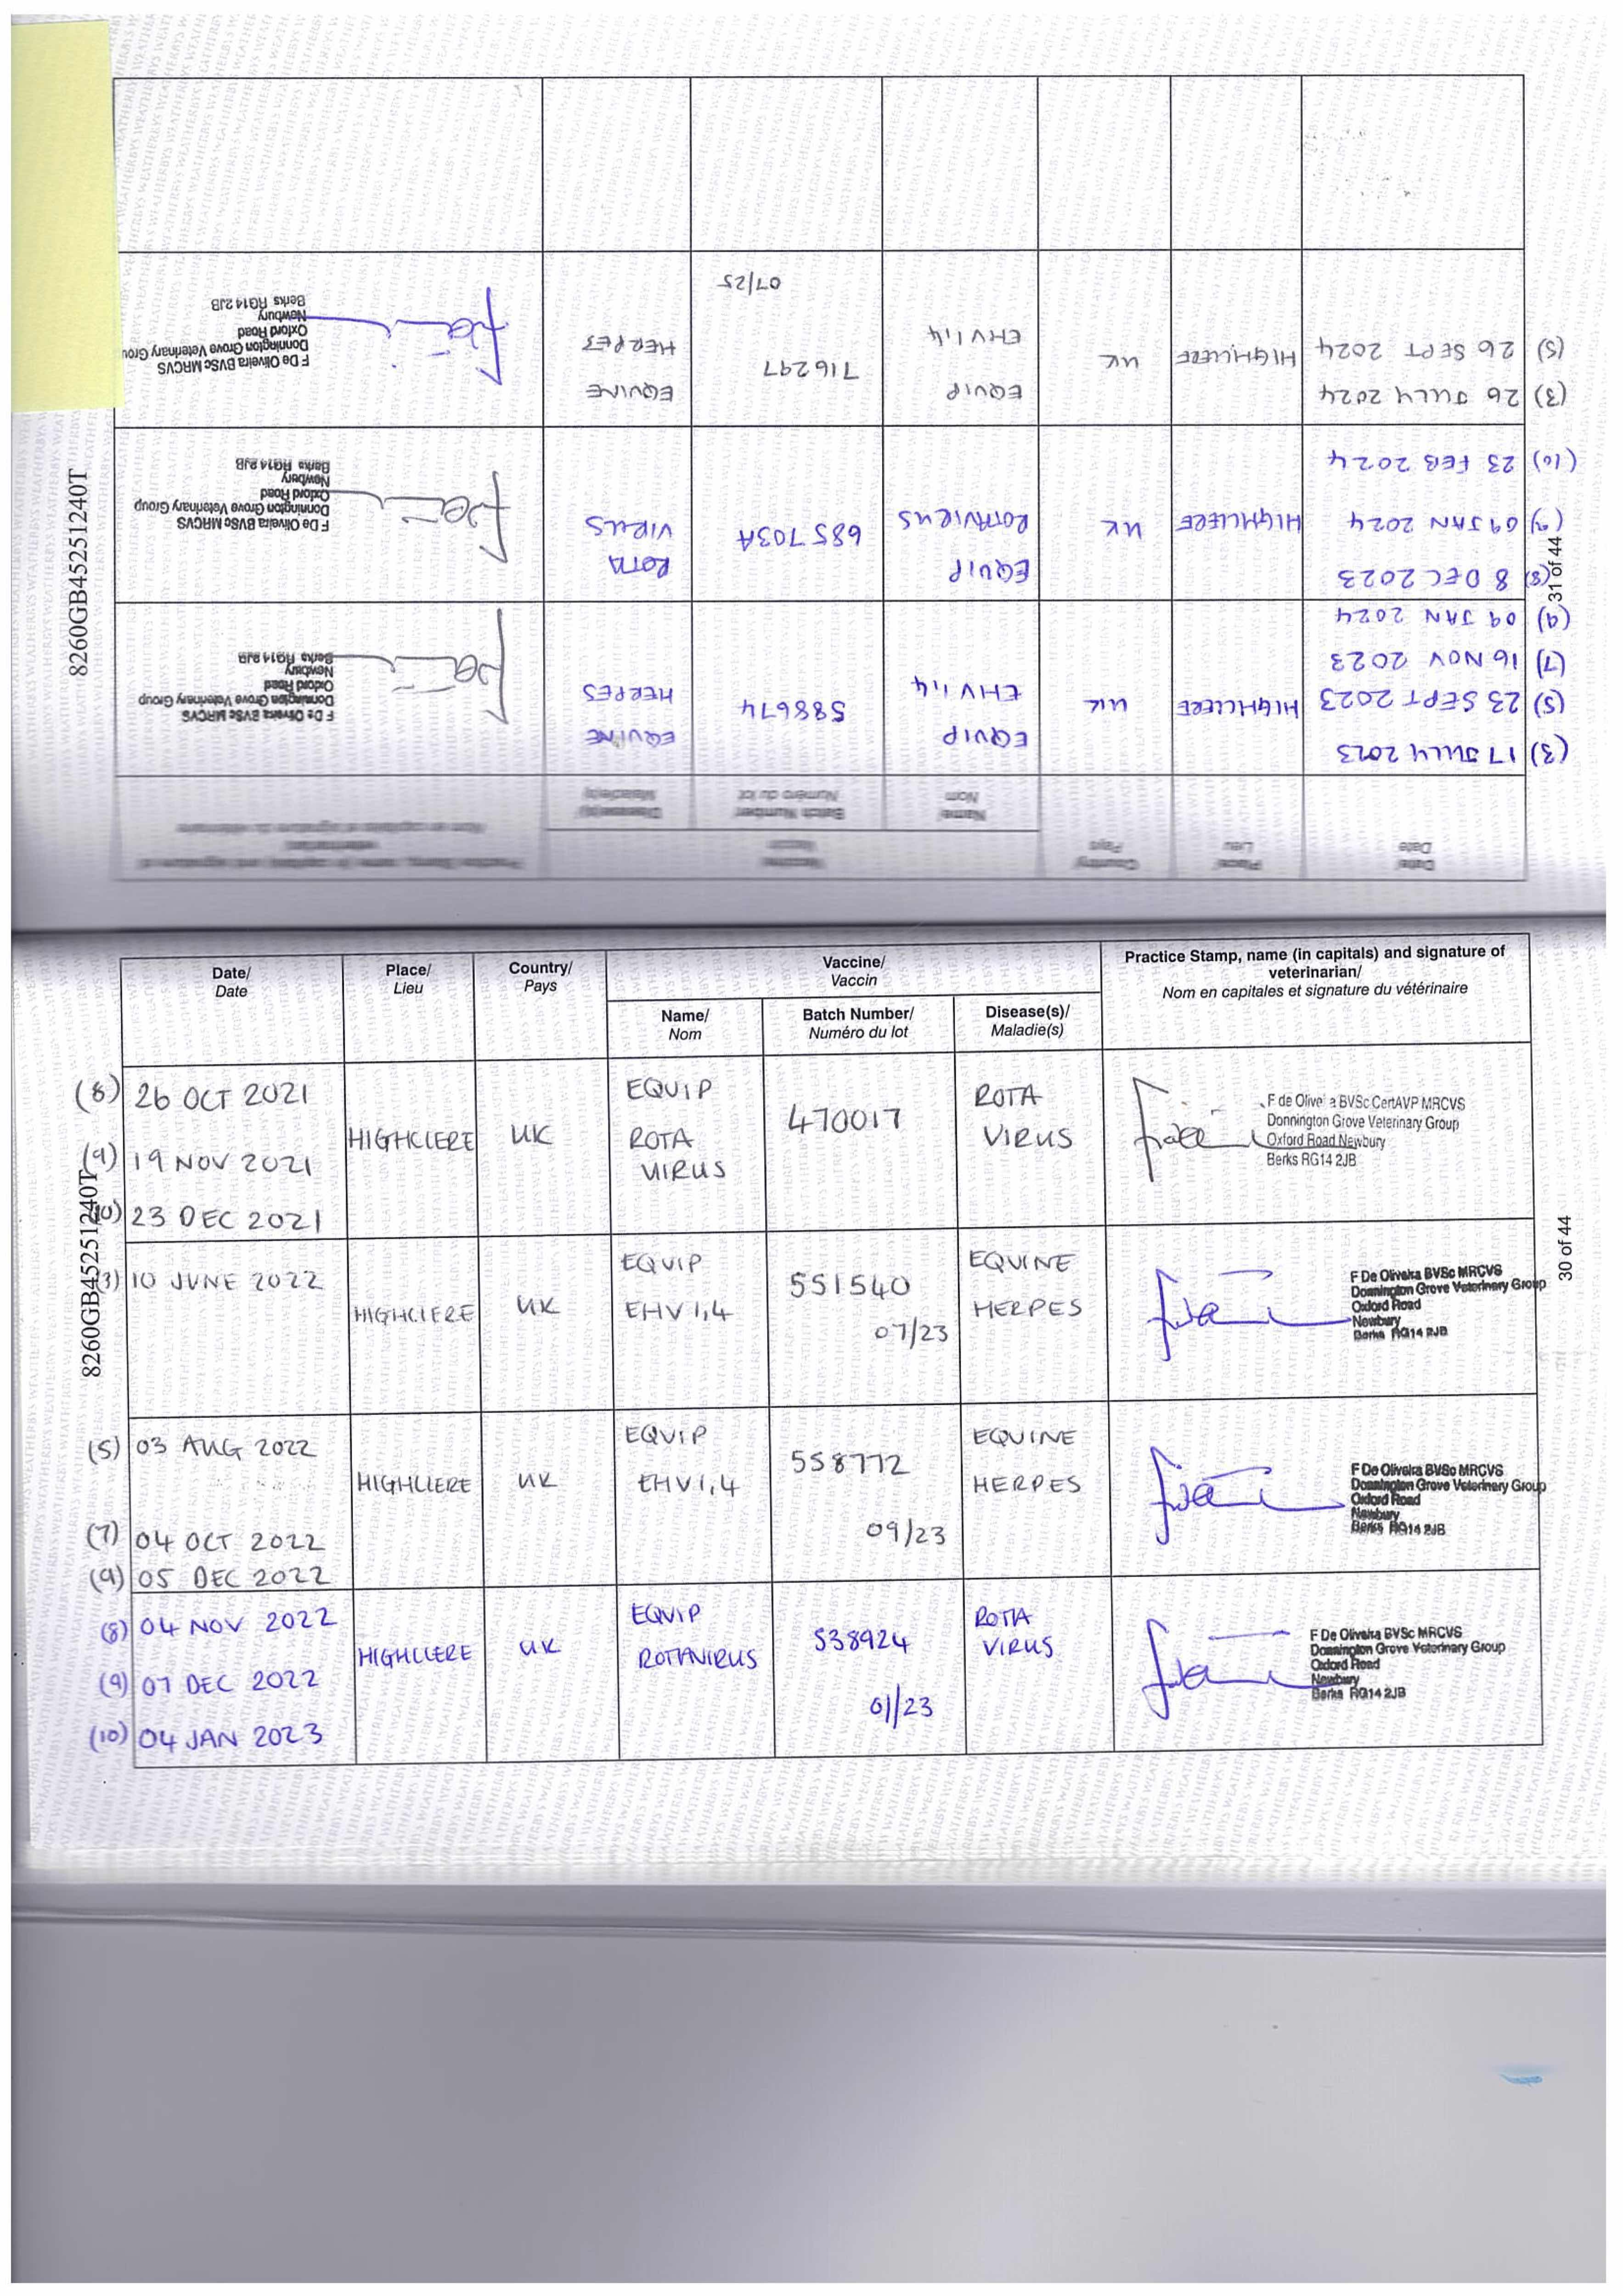 8260GB45251240T
30 of 44
Date/ Place/ Country/ Vaccine/ Practice Stamp, name (in capitals) and signature of
Date Lieu Pays Vaccin veterinarian/
Nom en capitales et signature du vétérinaire
Name/ Batch Number/ Disease(s)/
Nom Numéro du lot Maladie(s)
(8) 26 OCT 2021
(9) 19 NOV 2021
(10) 23 DEC 2021
HIGHCLERE
UK
EQUIP
ROTA
VIRUS
470017
ROTA
VIRUS
Donnington Grove Veterinary Group
Oxford Road Newbury
Berks RG14 2JB
(3) 10 JUNE 2022
HIGHCLERE
UK
EQUIP
EHV 1,4
551540
07/23
EQUINE
HERPES
F De Oliveira BVSc MRCVS
Donnington Grove Veterinary Group
Oxford Road
Newbury
Berks RG14 2JB
(5) 03 AUG 2022
(7) 04 OCT 2022
(9) 05 DEC 2022
HIGHCLERE
UK
EQUIP
EHV 1,4
558772
09/23
EQUINE
HERPES
F De Oliveira BVSc MRCVS
Donnington Grove Veterinary Group
Oxford Road
Newbury
Berks RG14 2JB
(8) 04 NOV 2022
(9) 07 DEC 2022
(10) 04 JAN 2023
HIGHCLERE
UK
EQUIP
ROTAVIRUS
538924
01/23
ROTA
VIRUS
F De Oliveira BVSc MRCVS
Donnington Grove Veterinary Group
Oxford Road
Newbury
Berks RG14 2JB
8260GB45251240T
31 of 44
Date Place Country Vaccine
Date Lieu Pays Vaccin
Name Batch Number Disease(s)
Nom Numéro du lot Maladie(s)
Practice Stamp, name (in capitals) and signature of
veterinarian
Nom en capitales et signature du vétérinaire
(3) 17 JULY 2023
(5) 23 SEPT 2023
(7) 16 NOV 2023
(9) 09 JAN 2024
HIGHCLERE
UK
EQUIP
EHV 1,4
588674
EQUINE
HERPES
F De Oliveira BVSc MRCVS
Donnington Grove Veterinary Group
Oxford Road
Newbury
Berks RG14 2JB
(8) 8 DEC 2023
(9) 09 JAN 2024
(10) 23 FEB 2024
HIGHCLERE
UK
EQUIP
ROTAVIRUS
685703A
ROTA
VIRUS
F De Oliveira BVSc MRCVS
Donnington Grove Veterinary Group
Oxford Road
Newbury
Berks RG14 2JB
(3) 26 JULY 2024
(5) 26 SEPT 2024
HIGHCLERE
UK
EQUIP
EHV 1,4
716297
07/25
EQUINE
HERPES
F De Oliveira BVSc MRCVS
Donnington Grove Veterinary Grou
Oxford Road
Newbury
Berks RG14 2JB